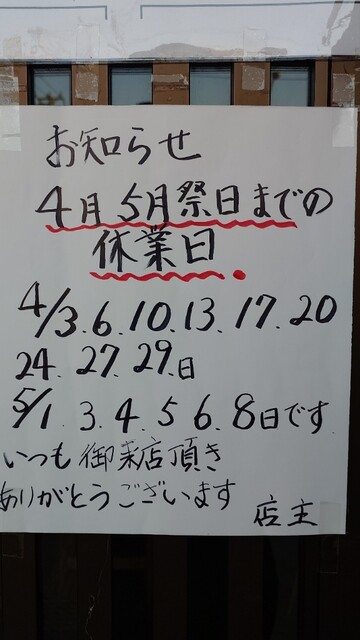 お知らせ
4月5月祭日までの
休業日
4/3.6.10.13.17.20
24.27.29.日
5/1.3.4.5 6.8日です
いつも御来店頂き
ありがとうございます
店主